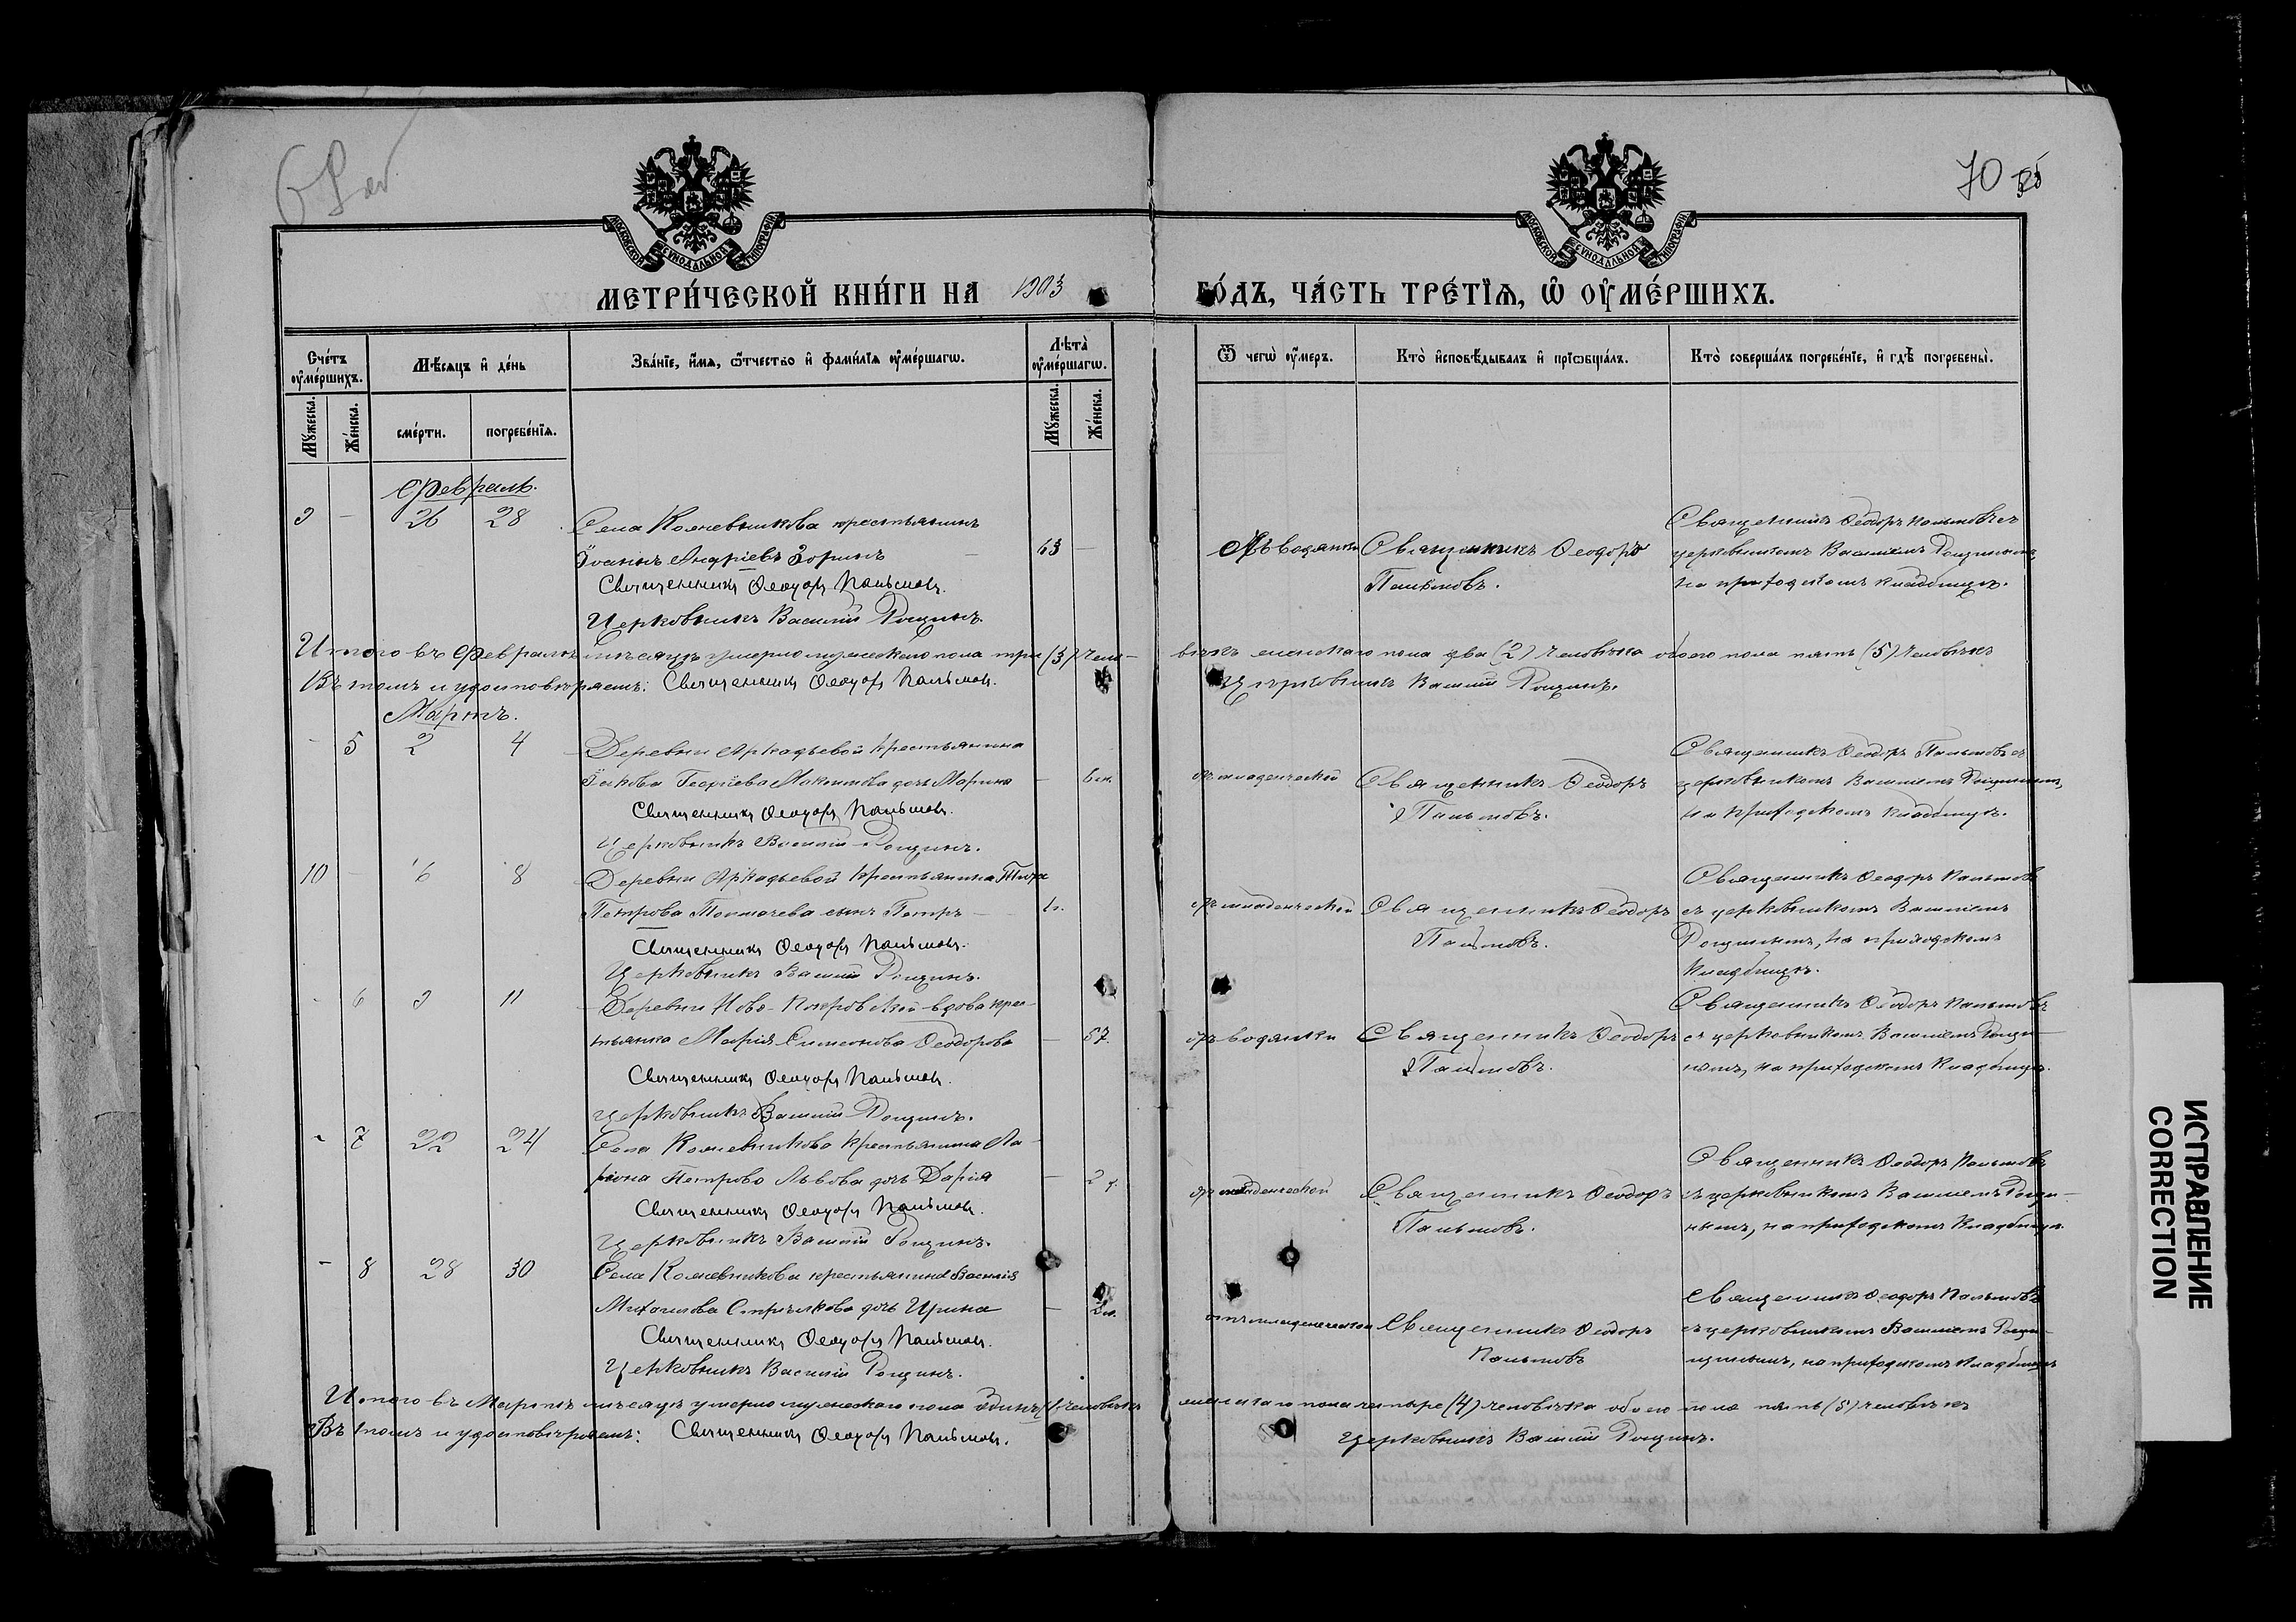 70
МОСКОВСКОЙ СѴНОДАЛЬНОЙ ТИПОГРАФІИ
МОСКОВСКОЙ СѴНОДАЛЬНОЙ ТИПОГРАФІИ
МЕТРИ́ЧЕСКОЙ КНИ́ГИ НА 1903 ГО́ДЪ, ЧА́СТЬ ТРЕ́ТЇЯ, Ѡ҆ ОУ҆МЕ́РШИХЪ.
Счетъ оу҆ме́ршихъ.
Мꙋжеска.
Же́нска.
Мѣ́сяцъ и҆ де́нь
сме́рти.
погребе́нїя.
Зва́нїе, и҆́мя, ѻ҆́тчество и҆ фами́лїя оу҆ме́ршагѡ.
Лѣта̀ оу҆ме́ршагѡ.
Мꙋжеска.
Же́нска.
Ѿ чегѡ̀ оу҆́меръ.
Кто̀ и҆сповѣ́дывалъ и҆ прїѡбща́лъ.
Кто̀ соверша́лъ погребе́нїе, и҆ гдѣ̀ погребены̀.
Февраль.
9 - 26 28
Села Кожевникова крестьянинъ
Іоаннъ Андріевъ Зоринъ - 63 -
Священникъ Ѳеодоръ Пальмовъ.
Церковникъ Василій Рощинъ.
Отъ водянки
Священникъ Ѳеодоръ
Пальмовъ.
Священникъ Ѳеодоръ Пальмовъ съ
церковникомъ Василіемъ Рощинымъ,
на приходскомъ кладбищѣ.
Итого въ Февралѣ мѣсяцѣ умерло мужескаго пола три (3) чело-
вѣкъ женскаго пола два (2) человѣка обоего пола пять (5) человѣкъ
Въ томъ и удостовѣряемъ: Священникъ Ѳеодоръ Пальмовъ.
Церковникъ Василій Рощинъ.
Мартъ.
- 5 2 4
Деревни Аркадьевой крестьянина
Іакова Георгіева Максимова дочь Марина - 6 м.
Священникъ Ѳеодоръ Пальмовъ.
Церковникъ Василій Рощинъ.
Отъ младенческой
Священникъ Ѳеодоръ
Пальмовъ.
Священникъ Ѳеодоръ Пальмовъ съ
церковникомъ Василіемъ Рощинымъ,
на приходскомъ кладбищѣ.
10 - 6 8
Деревни Аркадьевой крестьянина
Петрова Толмачева сынъ Петръ -
Священникъ Ѳеодоръ Пальмовъ.
Церковникъ Василій Рощинъ.
Отъ младенческой
Священникъ Ѳеодоръ
Пальмовъ.
Священникъ Ѳеодоръ Пальмовъ
съ церковникомъ Василіемъ
Рощинымъ, на приходскомъ
кладбищѣ.
- 6 9 11
Деревни Ново-Покровской вдова крес-
тьянка Марія Симеонова Ѳеодорова - 57.
Священникъ Ѳеодоръ Пальмовъ.
Церковникъ Василій Рощинъ.
Отъ водянки
Священникъ Ѳеодоръ
Пальмовъ.
Священникъ Ѳеодоръ Пальмовъ
съ церковникомъ Василіемъ Рощи-
нымъ, на приходскомъ кладбищѣ.
- 7 22 24
Села Кожевникова крестьянина Ла-
ріона Петрова Львова дочь Дарія - 2
Священникъ Ѳеодоръ Пальмовъ.
Церковникъ Василій Рощинъ.
Отъ младенческой
Священникъ Ѳеодоръ
Пальмовъ.
Священникъ Ѳеодоръ Пальмовъ
съ церковникомъ Василіемъ Рощи-
нымъ, на приходскомъ кладбищѣ.
- 8 28 30
Села Кожевникова крестьянина Василія
Михаилова Стрѣлкова дочь Ирина -
Священникъ Ѳеодоръ Пальмовъ.
Церковникъ Василій Рощинъ.
отъ младенческой
Священникъ Ѳеодоръ
Пальмовъ
Священникъ Ѳеодоръ Пальмовъ
съ церковникомъ Василіемъ
на приходскомъ кладбищѣ
Итого въ Мартѣ мѣсяцѣ умерло мужескаго пола одинъ (1) человѣкъ
женскаго пола четыре (4) человѣка обоего пола пять (5) человѣкъ
Въ томъ и удостовѣряемъ: Священникъ Ѳеодоръ Пальмовъ.
Церковникъ Василій Рощинъ.
ИСПРАВЛЕНИЕ
CORRECTION